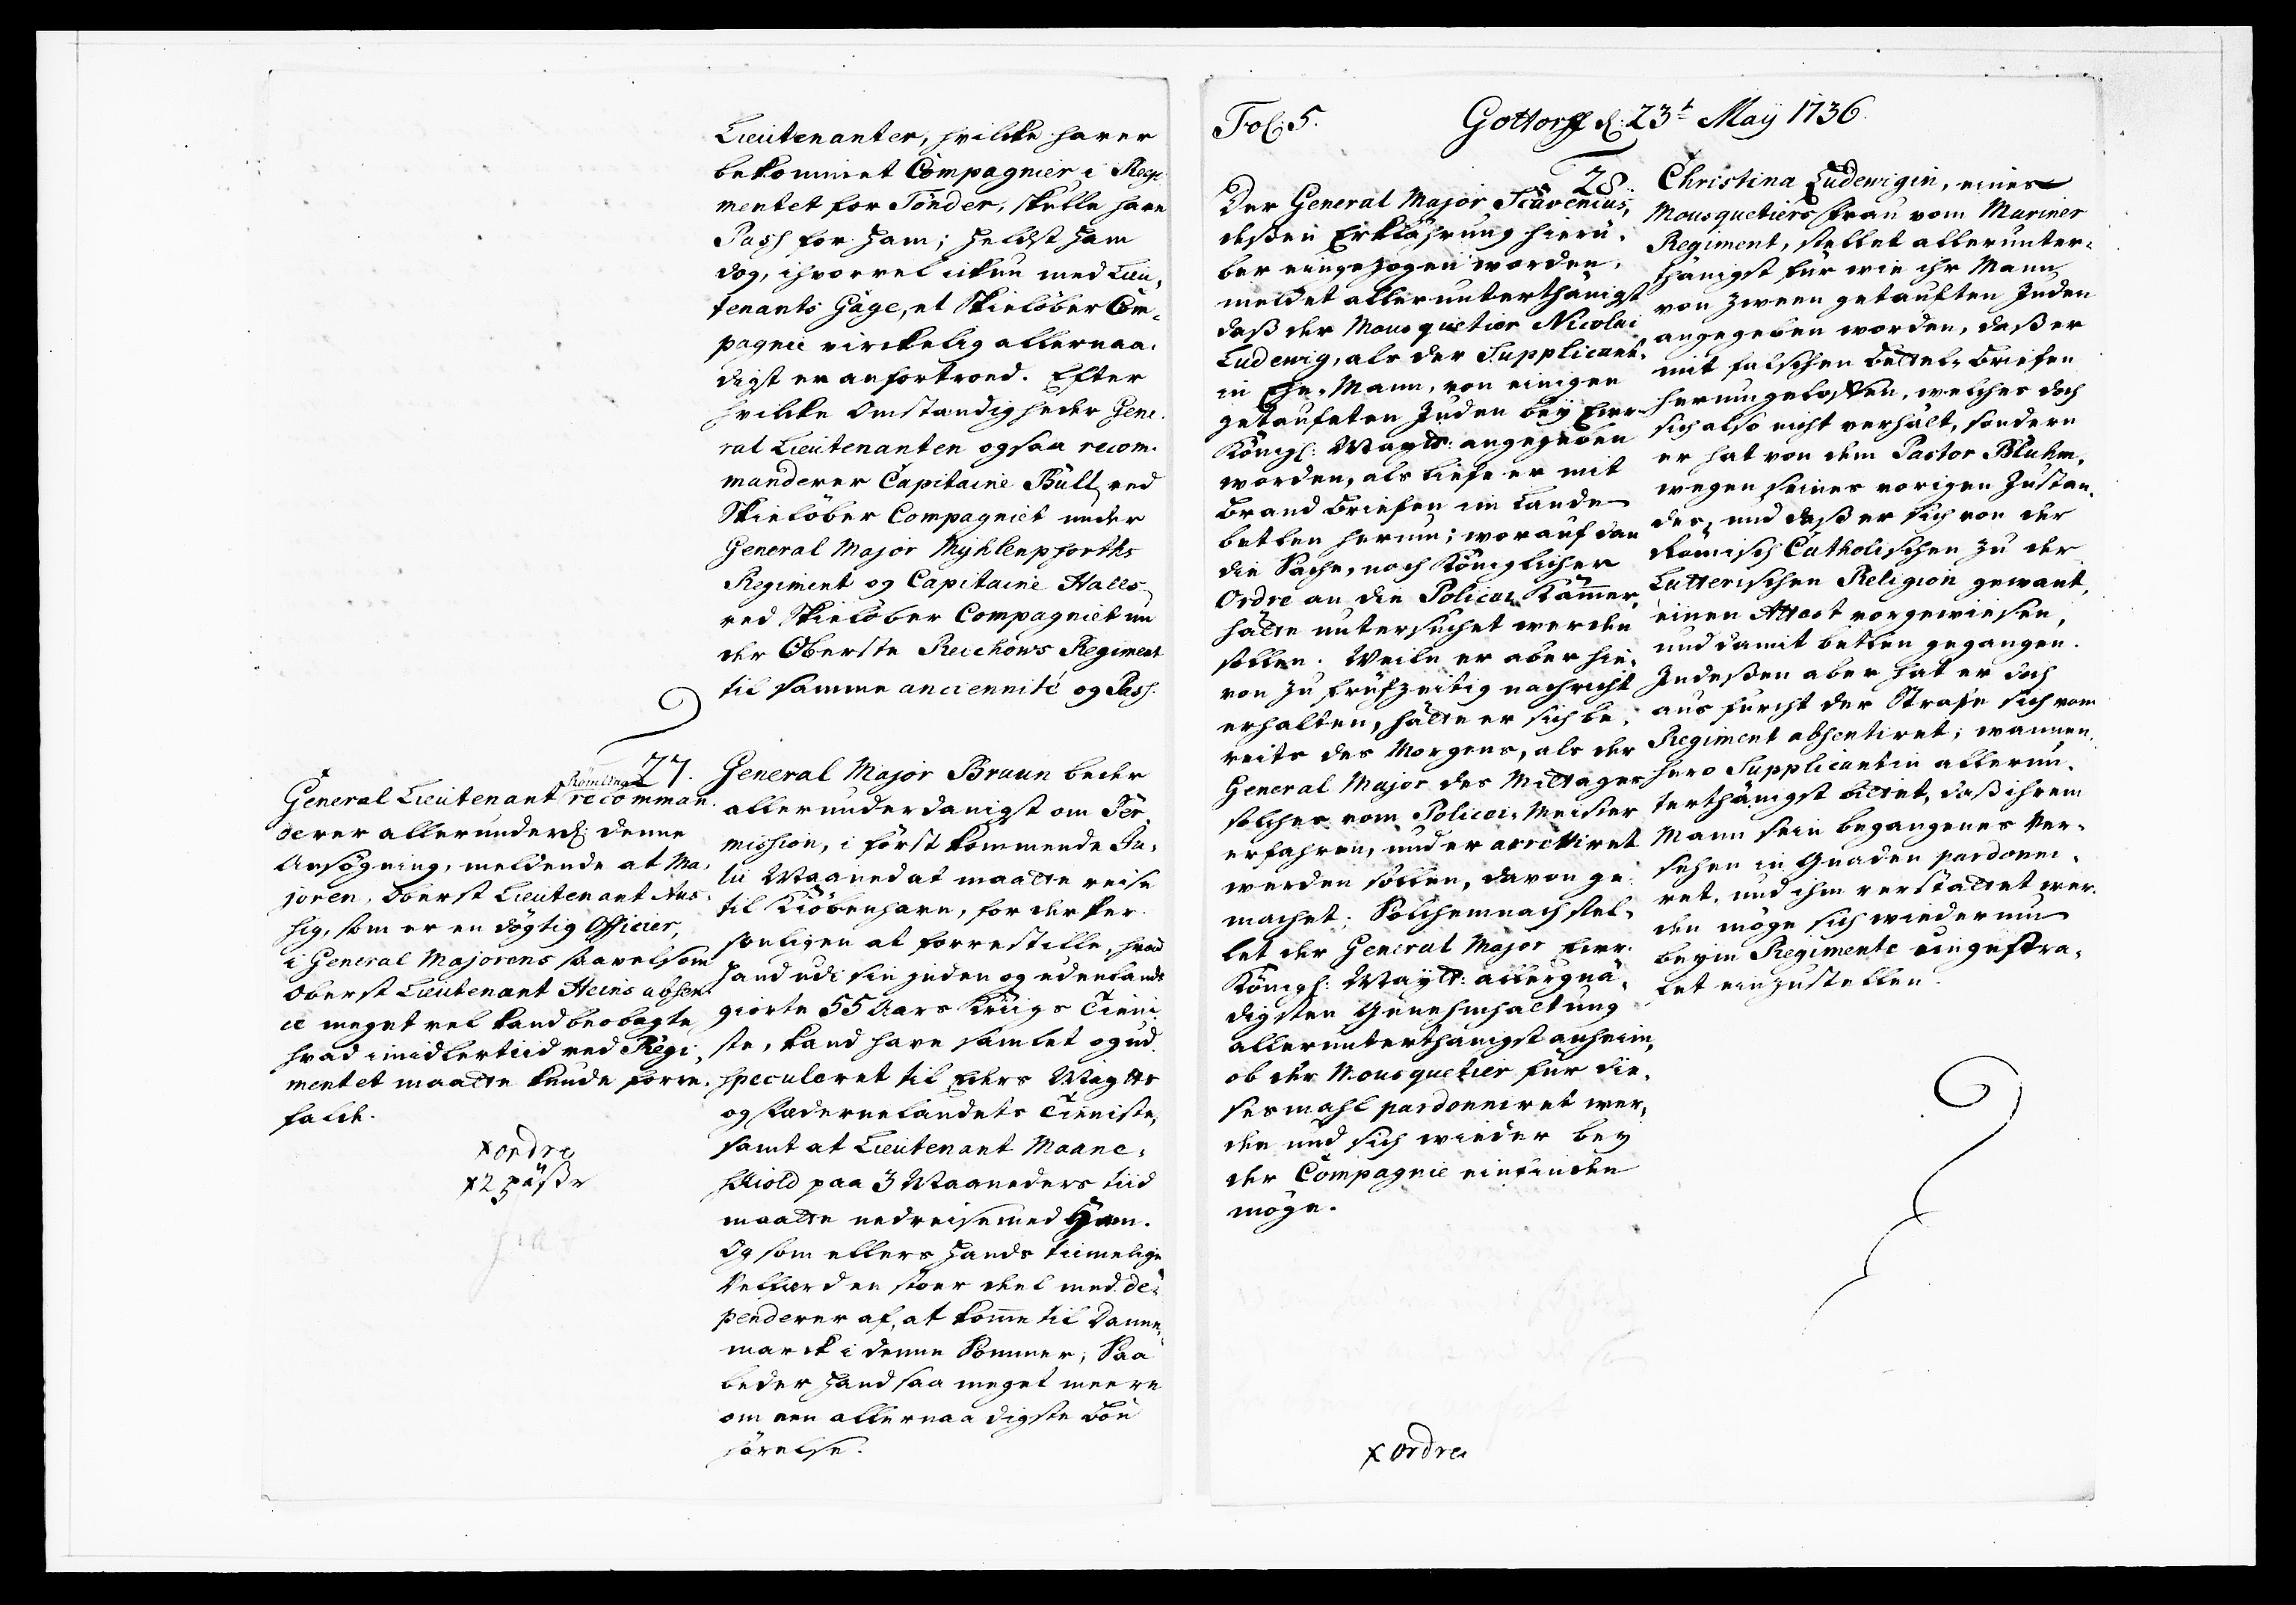 Lieutenanter, hvilke haver
bekommet Compagnier i Regi
mentet for Tönder, skulle have
Pass for ham; heldst ham
dog, ihvorvel ickun med Lieu,
tenants Gage, et Skielöber Com,
pagnie virckelig allernaa,
digst er anfortroed. Efter
hvilke Omstændigheder Gene,
ral Lieutenanten ogsaa recom,
manderer Capitaine Bull ved
Skielöber Compagniet under
General Major Myhlenpforths
Regiment og Capitaine Halls
ved Skielöber Compagniet un
der Oberste Reichows Regiment
til samme anciennité og Pass.
27.
General Lieutenant Römling recomman,
derer allerunderd: denne
Ansögning, meldende at Ma,
joren, Oberst Lieutenant Aus,
sig, som er en dögtig Officier,
i General Majorens saavelsom
Oberst Lieutenant Heins absen,
ce meget vel kand beobagte
hvad imidlertiid ved Regi,
mentet maatte kunde forre,
falde.
x ordre
x 2 päße
General Major Braun beder
allerunderdanigst om Per,
mission, i först kommende Ju,
lii Maaned at maatte reise
til Kiöbenhavn, for der per,
sonligen at forrestille, hvad
hand udi sin inden og udenlands
giorte 55 Aars Kriigs Tieni,
ste, kand have samlet og ud,
speculeret til Eders Maytts
og Fædernelandets Tieniste,
samt at Lieutenant Maane,
skiold paa 3 Maaneders tiid
maatte nedreise med Ham.
Og som ellers hands timelige
Velfærd en stoer deel med de,
penderer af, at kom̄e til Danne,
marck i denne Sommer; Saa
beder hand saa meget meere
om een allernaadigste Bön
hörelse.
Fol: 5.
Gottorff d: 23t May 1736.
28.
Der General Major Scavenius,
deßen Erklährung hierü,
ber eingezogen worden,
meldet allerunterthänigst
daß der Mousquetier Nicolai
Ludewig, als der Supplicant,
in Ehe-Mann, von einigen
getaufeten Juden bey Ewr
Königl: Maytt: angegeben
worden, als liefe er mit
Brand Briefen im Lande
betlen herum; worauf dan
die Sache, nach Königlicher
Ordre an die Policei Kam̄er,
hätte untersuchet werden
sollen. Weile er aber hie,
von zu frühzeitig nachricht
erhalten, hätte er sich be,
reits des Morgens, als der
General Major des Mittages
solches vom Policei-Meister
erfahren, und er arretiret
werden sollen, davon ge,
machet. Solchemnach stel,
let der General Major Ewr.
Königl: Maytt: allergnä,
digsten Genehmhaltung
allerunterthänigst anheim,
ob der Mousquetier für die,
sesmahl pardonniret wer,
den und sich wieder bey
der Compagnie einfinden
möge.
x ordre
Christina Ludewigin, eines
Mousquetiers Frau vom Mariner
Regiment, stellet allerunter,
thänigst für wie ihr Mann
von zween getauften Juden
angegeben worden, daß er
mit falschen Bettel-Briefen
herumgelossen, welches doch
sich also nicht verhält, sondern
er hat von dem Pastor Bluhm,
wegen seines vorigen Zustan,
des, und daß er sich von der
Römisch Catholischen zu der
Lutterischen Religion gewant,
einen Attest vorgewiesen,
und damit betlen gegangen.
Indeßen aber hat er doch
aus furcht der Straße sich vom
Regiment absentiret; wannen,
hero Supplicantin allerun,
terthänigst bittet, daß ihrem
Mann sein begangenes Ver,
sehen in Gnaden pardonni,
ret, und ihm verstattet wer,
den möge sich wiederum
beym Regimente ungestra,
fet einzustellen.